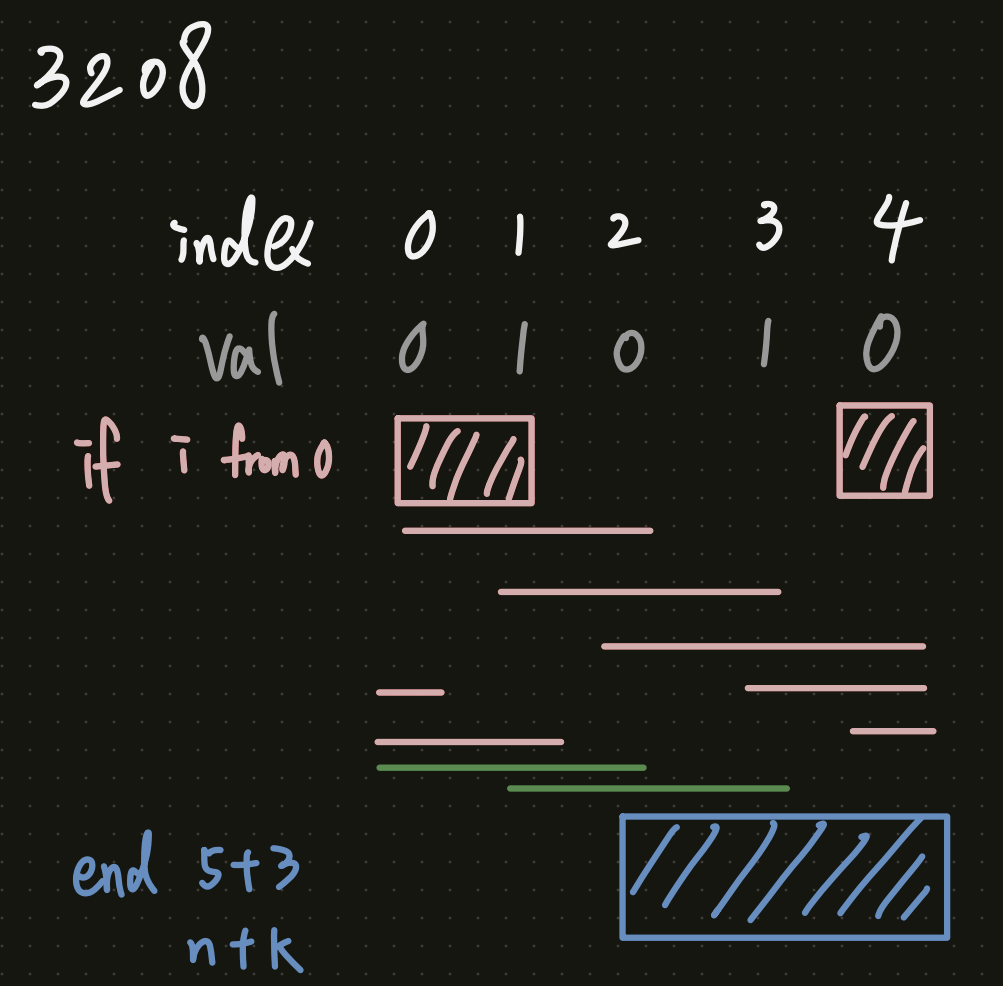 3208
index 0 1 2 3 4
val 0 1 0 1 0
if i from 0
end 5+3
n+k